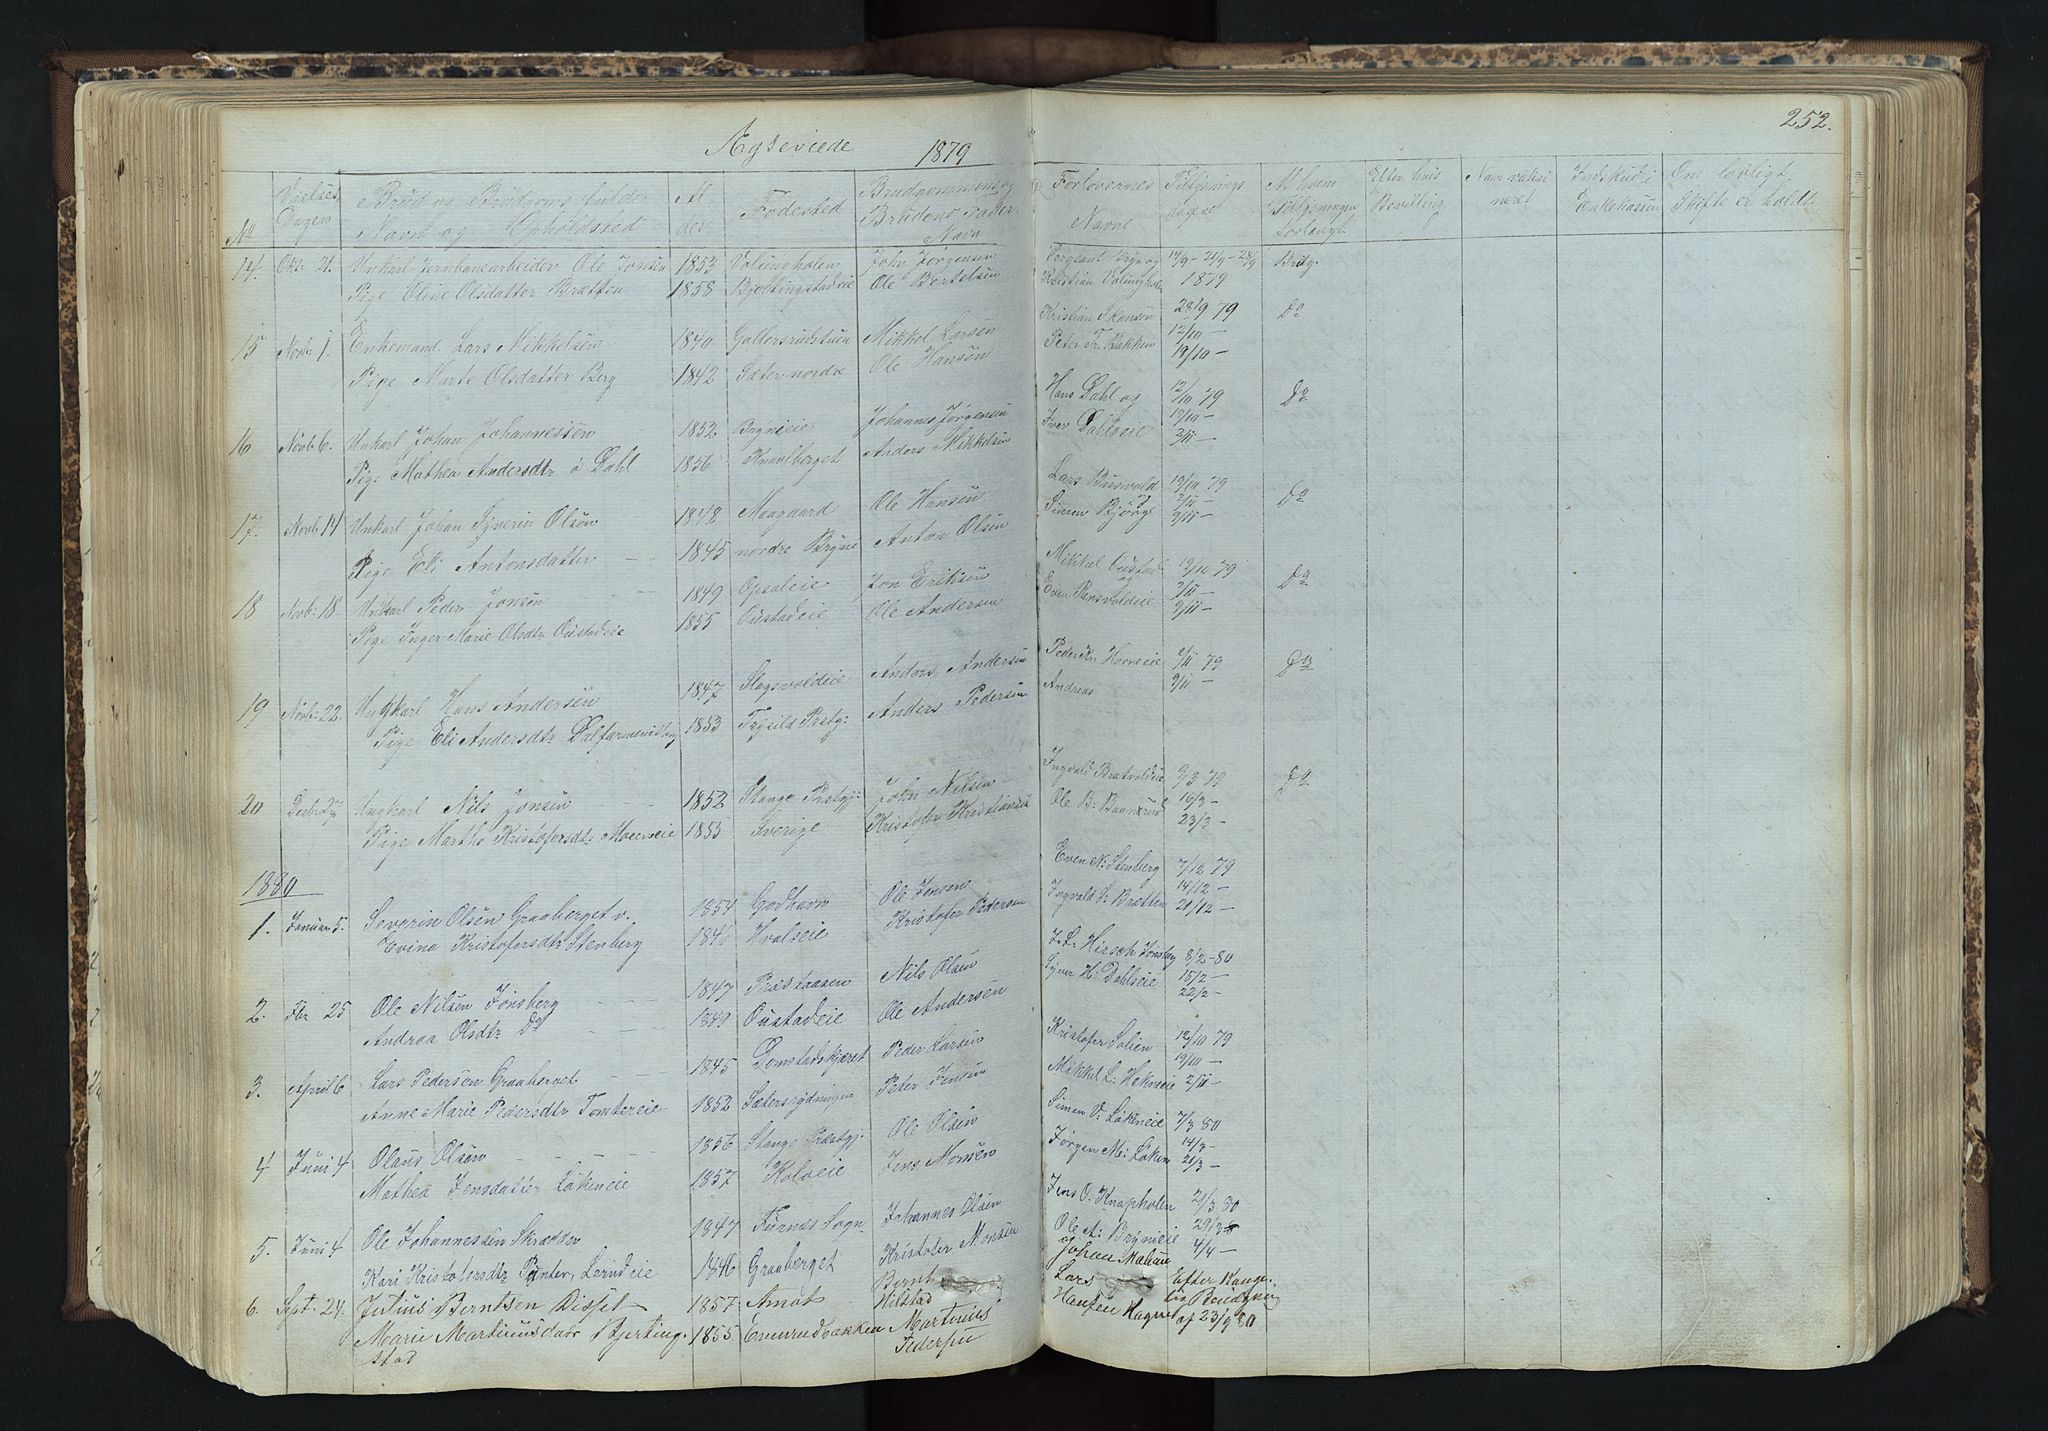 252.
Ægteviede 1879
No Vielses Dagen Brud og Brudgoms fulde Navn og Opholdsted Al der Fødested Brudgommens og Brudens Fader Navn Forlovernes Navne Tillysnings dagene Af hvem Tillysningen forlangt Efter hvis Bevilling Naar vaksi neret Indskud i Enkekassen Om lovligt Skifte er holdt
14. Oktr 21. Unkarl Jernbanearbeider Ole Jonsen 1853 Valungholen John Jørgensen Sergeant Bryn og 14/9 - 21/9 - 28/9 Brudg.
Pige Oline Olsdatter Brætten 1858 Bjertingstadeie Ole Bertelsen Kristian Valunghole 1879
15 Novb: 1. Enkemand Lars Mikkelsen 1840 Mikkel Larsen Kristian Skansen 28/9 79 Do
Pige Marte Olsdatter Berg 1842 Sæter nordre Ole Hansen Peter Fr. Bakken 12/10 -
19/10 -
16 Novb 6. Unkarl Johan Johannessen 1852 Bryneie Johannes Jørgensen Hans Dahl og 12/10 79 Do
Pige Mathea Andersdtr a Dahl 1856 Knaulberget Anders Mikkelsen Iver Dahlseie 19/10 -
2/11 -
17. Novb 14 Unkarl Johan Syverin Olsen 1848 Maagaard Ole Hansen Lars Busvold 19/10 79 Do
Pige Eli Antonsdatter 1845 nordre Bryne Anton Olsen Simen Bjørge 2/11 -
9/11 -
18 Novb: 18. Unkarl Peder Jonsen 1849 Opsaleie Jon Eriksen Mikkel Oustad og 19/10 79 Do
Pige Inger Marie Olsdtr Oustadeie 1855 Oustadeie Ole Andersen Even Rensvoldeie 2/11 -
9/11 -
19 Novb: 22. Ungkarl Hans Andersen 1847 Slagsvoldeie Anders Andersen Peder Kr Horneeie 2/11 79 Do
Pige Eli Andersdtr 1853 Trysild Prstg: Anders Pedersen Andreas 9/11 -
20 Decb: 27 Ungkarl Nils Jonsen 1852 Stange Prstgj: John Nilsen Ingvald Bratvoldeie 9/3 79 Do
Pige Marthe Kristofersdtr 1855 Sverige Kristofer Kristiansen Ole B: Baanrud 16/3 -
23/3 -
1880
1. Januar 5. Severin Olsen Graaberget v. 1854 Godhavn Ole Jensen Even N: Stenberg 7/12 79
Evina Kristofersdtr Stenberg 1846 Hvalseie Kristofer Pedersen Ingvald S: Brætten 14/12 -
21/12 -
2. Fbr 25 Ole Nilsen Jønsberg 1847 Præstaasen Nils Olsen J. L: Hirsch Jønsberg 8/2 - 80
Andrea Olsdtr Do 1849 Oustadeie Ole Andersen Syver H: Dahlseie 15/2 -
22/2 -
3. April 6 Lars Pedersen Graaberget 1845 Domstadskjæret Peder Larsen Kristofer Solien 12/10 79
Anne Marie Pedersdtr Tomtereie 1852 Sætersrydningen Peter Jensen Mikkel L: Hekneeie 19/10 -
2/11 -
4 Juni 4 Olaus Olsen 1856 Stange Præstgj. Ole Olsen Simen V: Løkeneie 7/3 80
Mathea Jensdatter Løkeneie 1857 Kolseie Jens Monsen Jørgen M: Løken 14/3 -
21/3 -
5. Juni 4 Ole Johannessen Skrædder 1847 Furnes Sogn Johannes Olsen Jens O. Knapholen 21/3 80
Kari Kristofersdtr 1846 Graaberget Kristofer Monsen Ole A: Bryneie 29/3
og Johan Malum 4/4 -
6. Sept. 24. Julius Berntsen Disset 1857 Amot Bernt Hilstad Lars Efter Konge-
Marie Martinusdatr Bjerting- 1855 Evenrudbakken Martinus Hansen Kagnes lig Bevilgning
stad Pedersen af 23/9 80